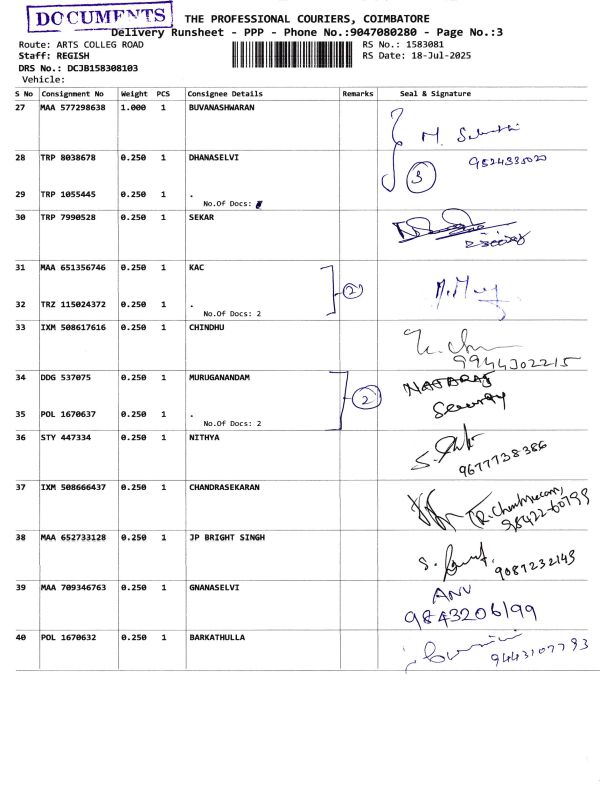 DOCUMENTS
THE PROFESSIONAL COURIERS, COIMBATORE
Delivery Runsheet - PPP - Phone No.:9047080280 - Page No.:3
Route: ARTS COLLEG ROAD
RS No.: 1583081
Staff: REGISH
RS Date: 18-Jul-2025
DRS No.: DCJB158308103
Vehicle:
S No Consignment No Weight PCS Consignee Details Remarks Seal & Signature
27 MAA 577298638 1.000 1 BUVANASHWARAN
28 TRP 8038678 0.250 1 DHANASELVI
3
29 TRP 1055445 0.250 1 .
No.Of Docs:
30 TRP 7990528 0.250 1 SEKAR
31 MAA 651356746 0.250 1 KAC
2
32 TRZ 115024372 0.250 1 .
No.Of Docs: 2
33 IXM 508617616 0.250 1 CHINDHU
9944302215
34 DDG 537075 0.250 1 MURUGANANDAM
NATARAJ
2
Security
35 POL 1670637 0.250 1 .
No.Of Docs: 2
36 STY 447334 0.250 1 NITHYA
9677738386
37 IXM 508666437 0.250 1 CHANDRASEKARAN
98422-60799
38 MAA 652733128 0.250 1 JP BRIGHT SINGH
9087232143
39 MAA 709346763 0.250 1 GNANASELVI
ANU
9843206199
40 POL 1670632 0.250 1 BARKATHULLA
9443107793